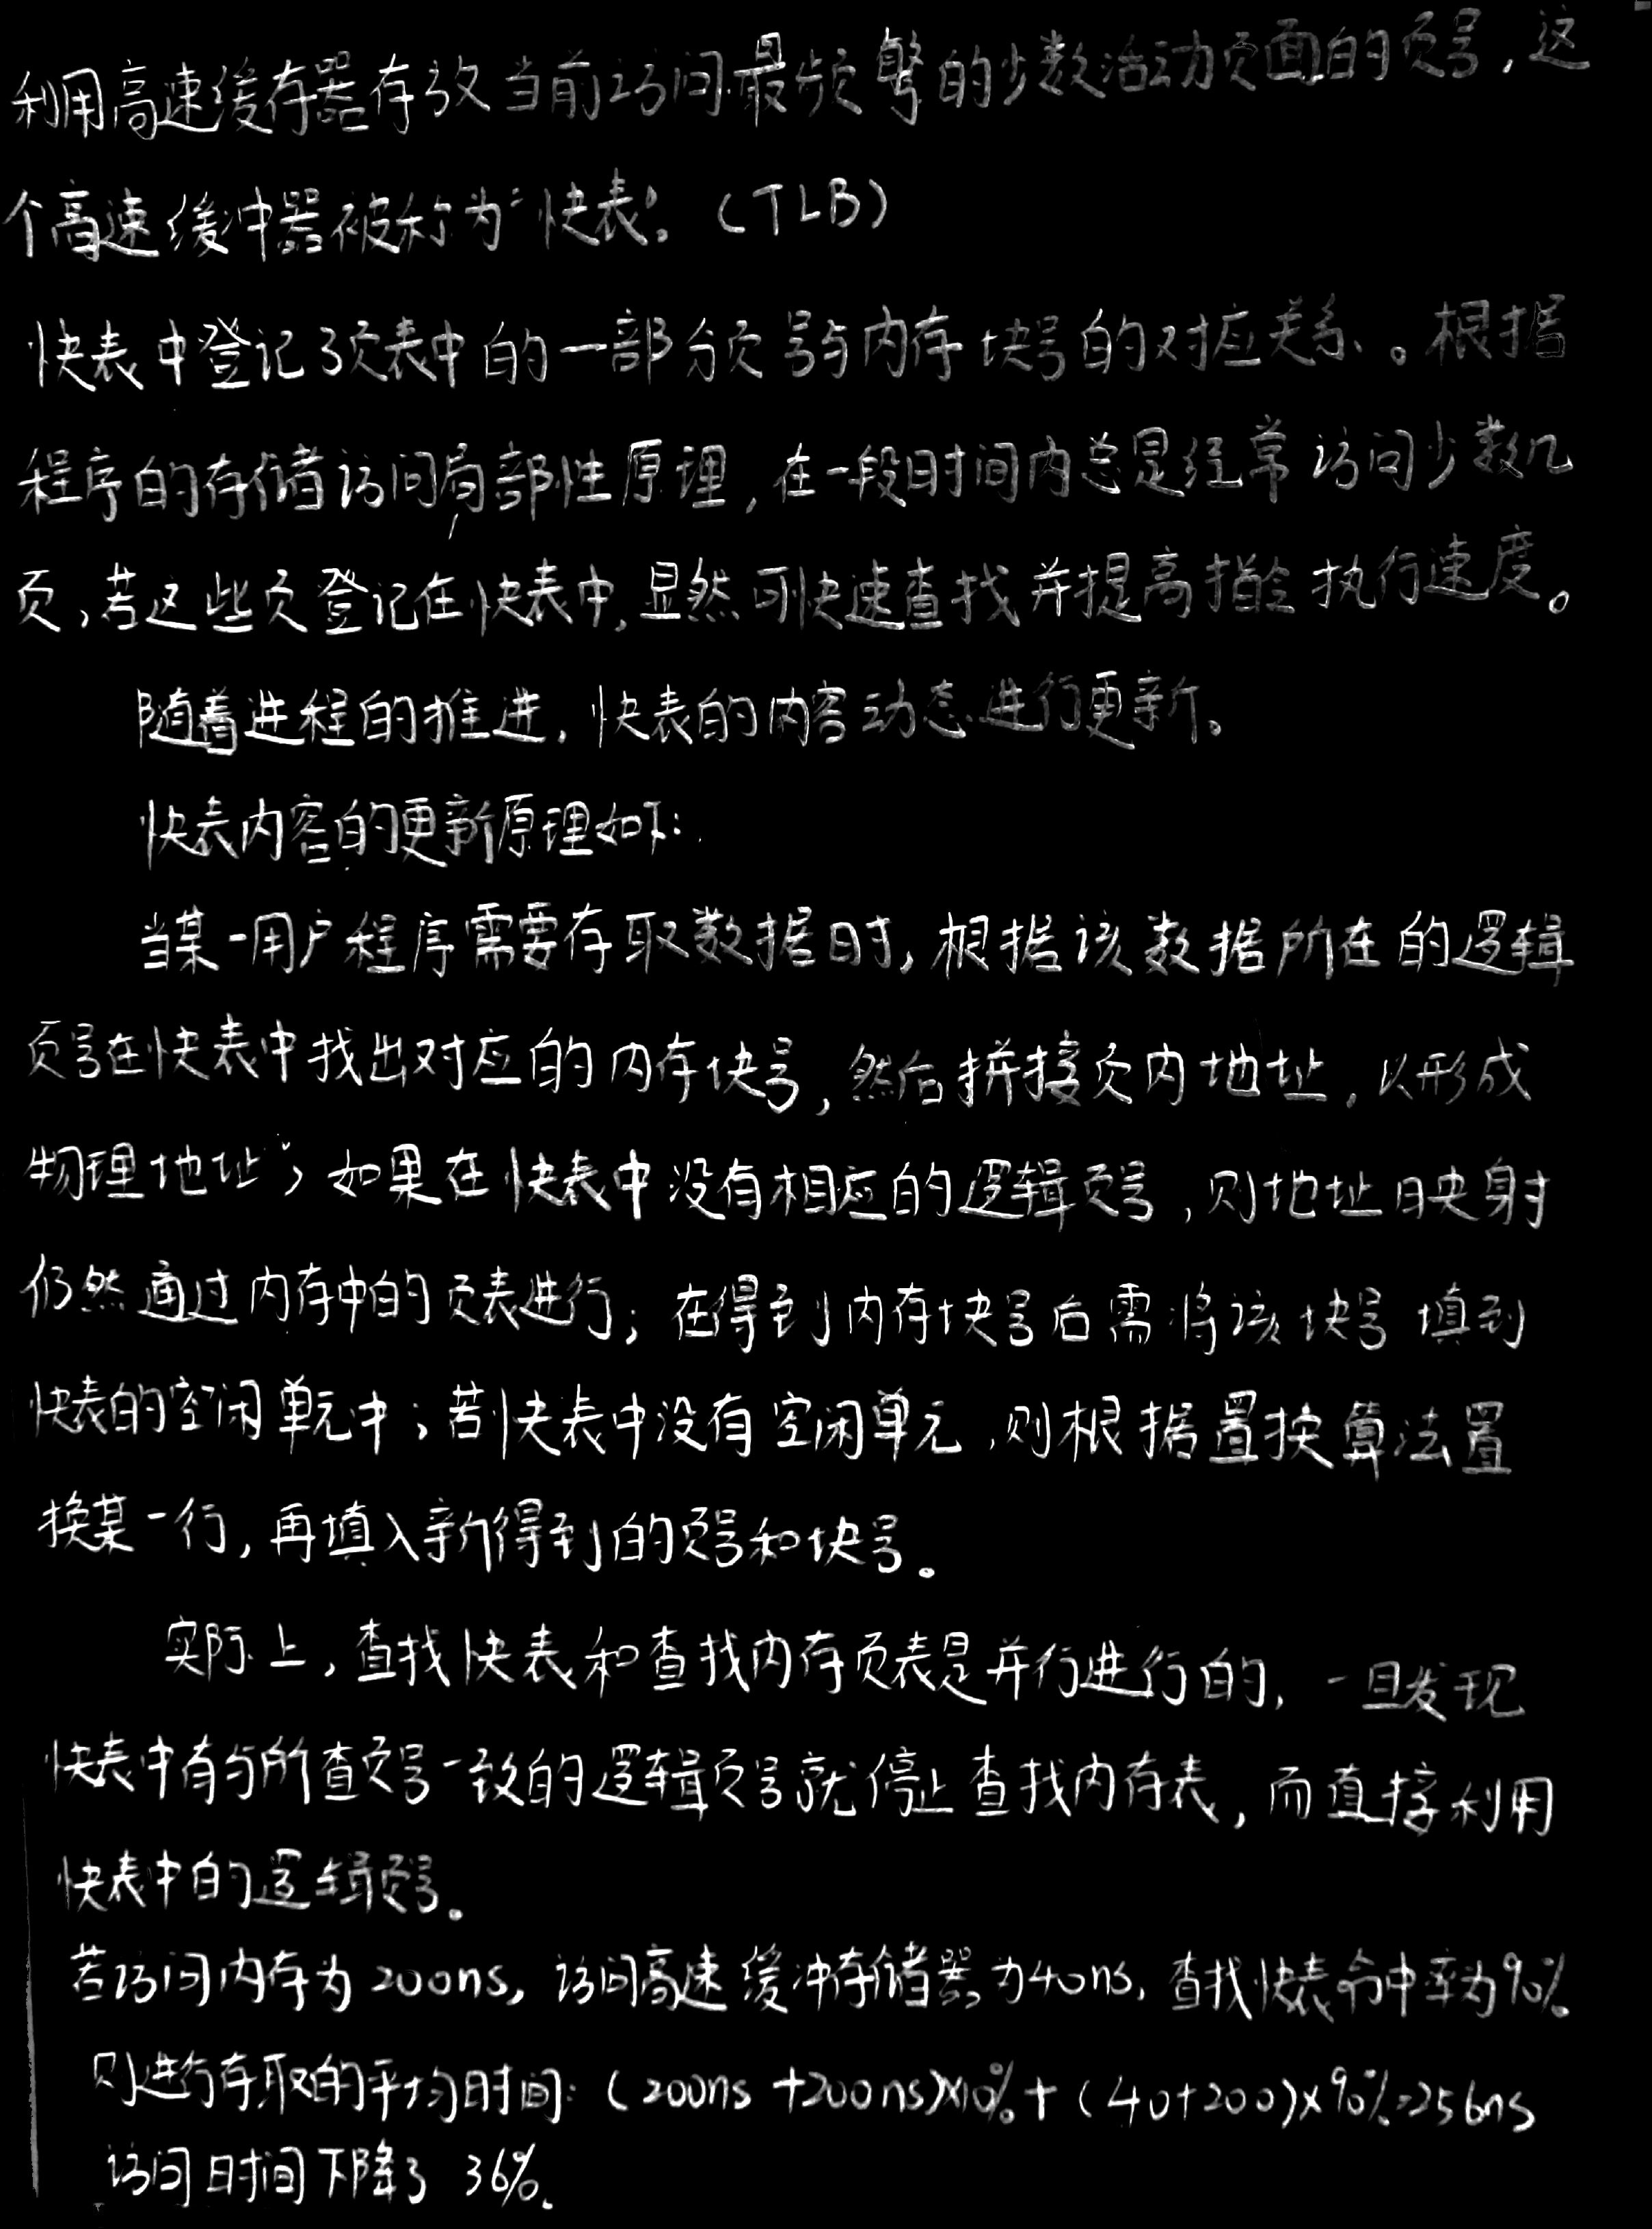 利用高速缓存器存放当前访问最频繁的少数活动页面的页号，这
个高速缓冲器被称为“快表”。（TLB）
快表中登记了页表中的一部分页号与内存块号的对应关系。根据
程序的存储访问局部性原理，在一段时间内总是经常访问少数几
页，若这些页登记在快表中，显然可快速查找并提高指令执行速度。
随着进程的推进，快表的内容动态进行更新。
快表内容的更新原理如下：
当某一用户程序需要存取数据时，根据该数据所在的逻辑
页号在快表中找出对应的内存块号，然后拼接页内地址，以形成
物理地址；如果在快表中没有相应的逻辑页号，则地址映射
仍然通过内存中的页表进行；在得到内存块号后需将该块号填到
快表的空闲单元中；若快表中没有空闲单元，则根据置换算法置
换某一行，再填入新得到的页号和块号。
实际上，查找快表和查找内存页表是并行进行的，一旦发现
快表中有与所查页号一致的逻辑页号就停止查找内存表，而直接利用
快表中的逻辑页号。
若访问内存为200ns，访问高速缓冲存储器为40ns，查找快表命中率为90%
则进行存取的平均时间：（200ns+200ns)×10%+（40+200)×90%=256ns
访问时间下降了 36%.